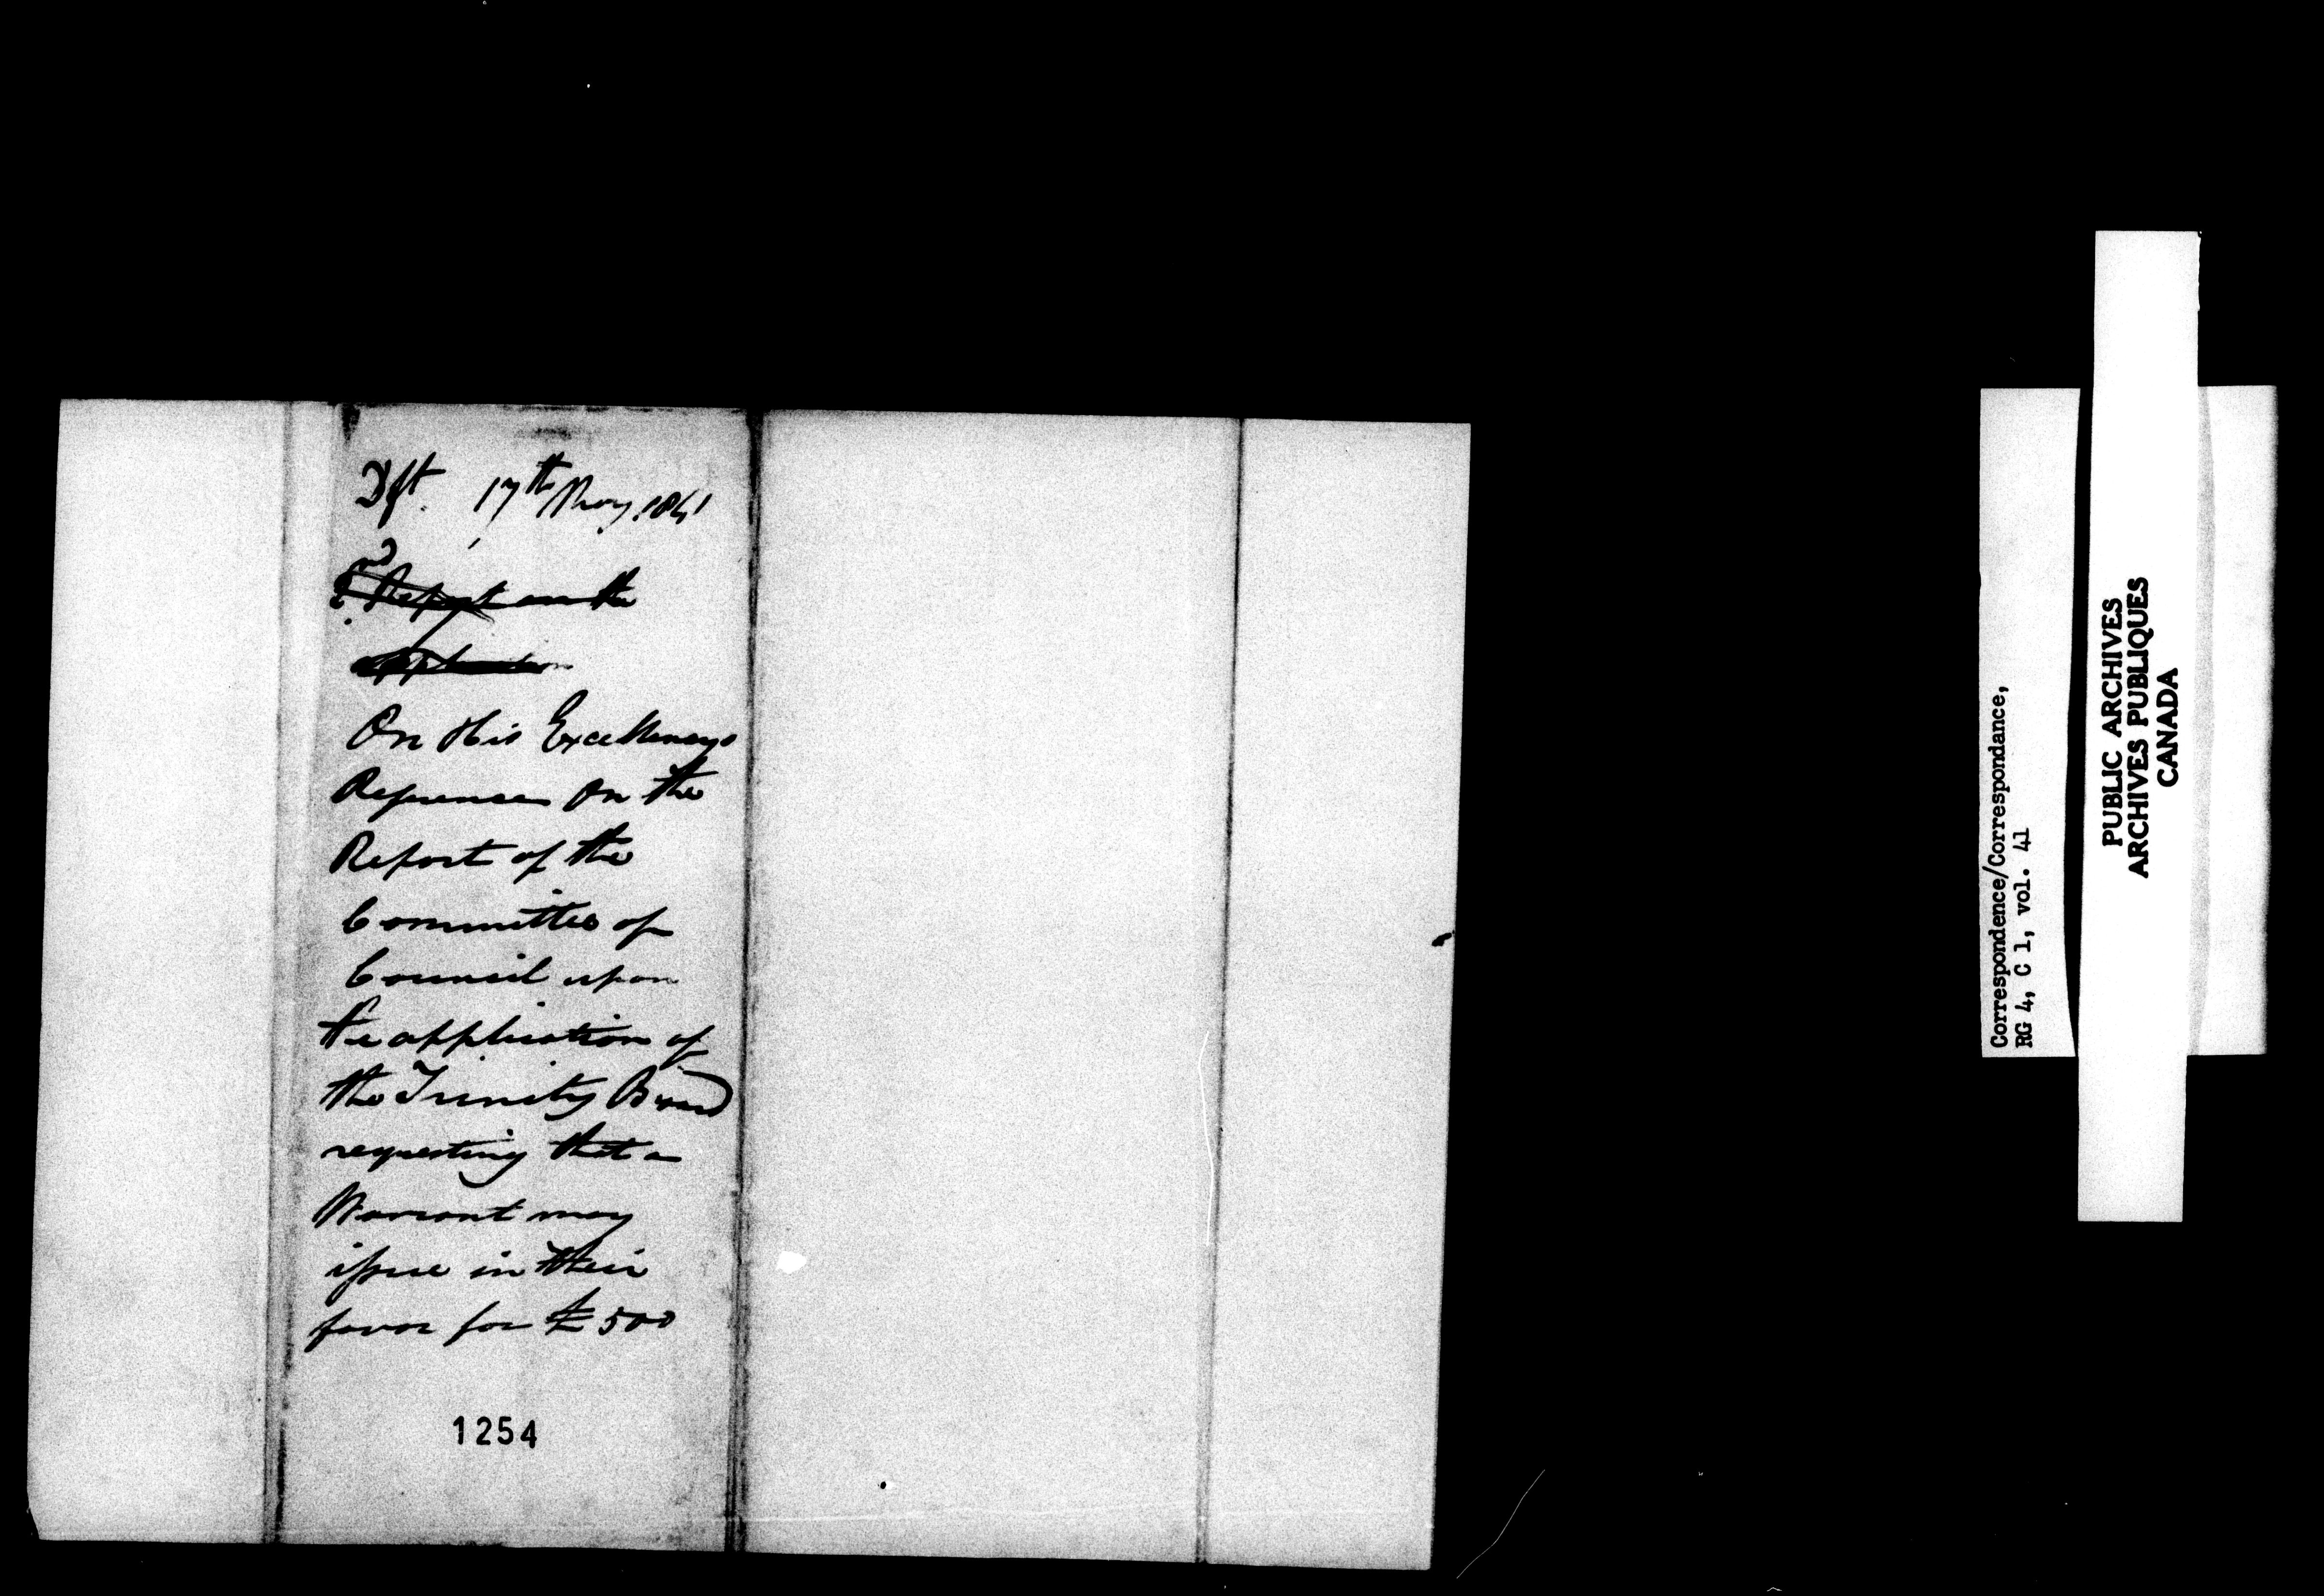 Dft. 17th May 1841
Report on the
application
On His Excellencys
Reference on the
Report of the
Committee of
Council upon
the application of
the Trinity Board
requesting that a
Warrant may
issue in their
favor for £500
1254
Correspondence/Correspondance,
RG 4, C 1, vol. 41
PUBLIC ARCHIVES
ARCHIVES PUBLIQUES
CANADA